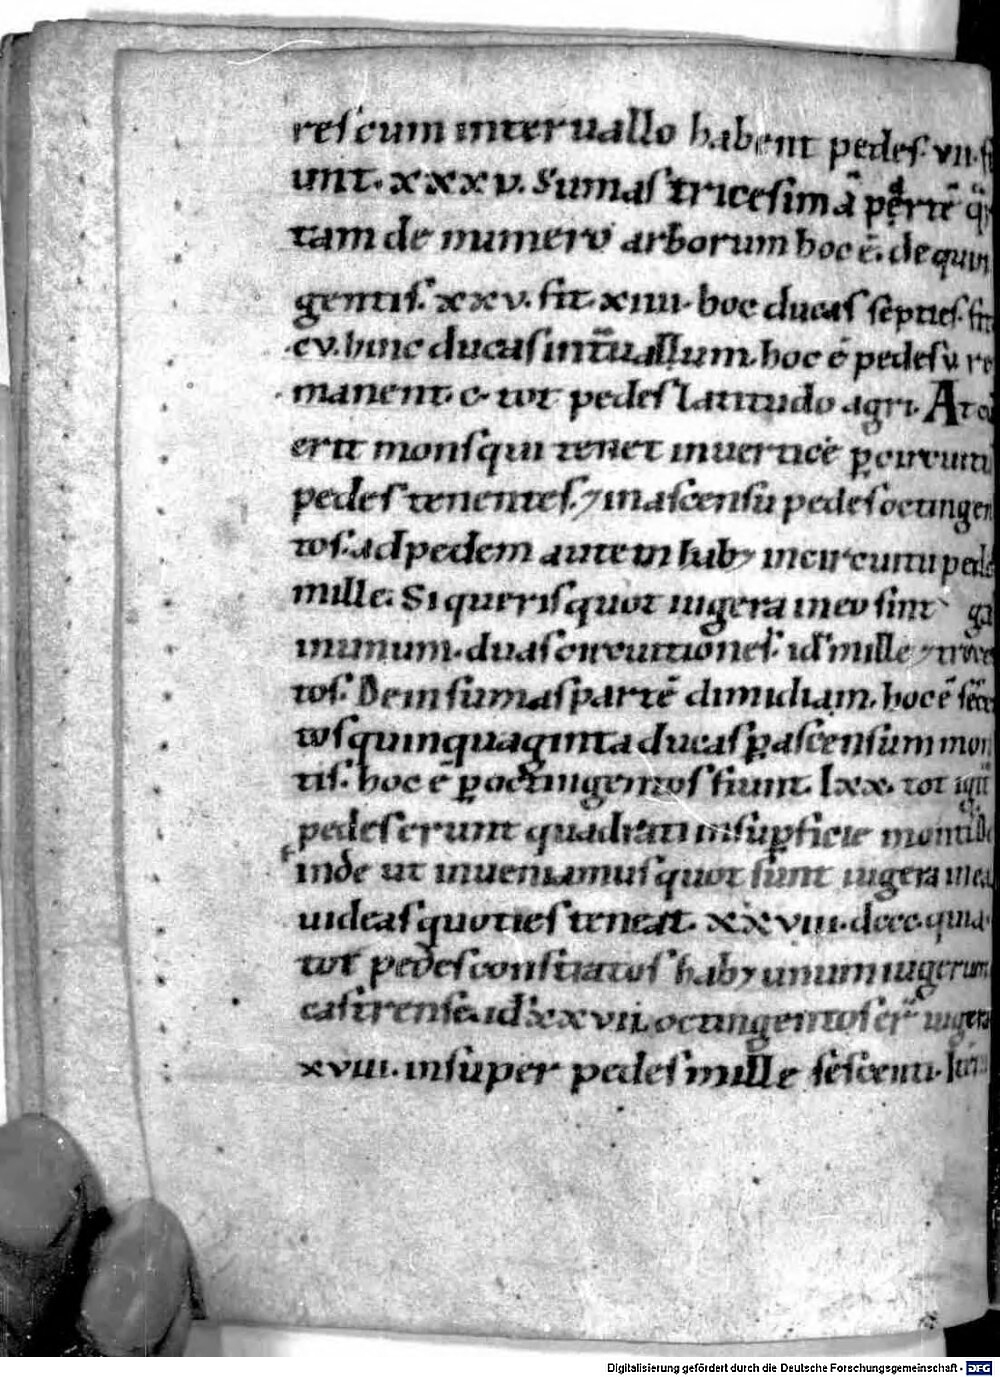 reſ cum interuallo habent pedeſ. vii. fi
unt. xxxv. Sumaſ triceſimā partē
tam de numero arborum hoc ē. de quin
gentiſ. xxv. fit. xiiii. hoc ducaſ ſeptieſ. fit
cv. hinc ducaſ int̄uallum. hoc ē pedeſ v re
manent. c. tot pedeſ latitudo agri. At
erit monſ qui tenet in uertice ꝑ circuitū
pedeſ tenenteſ. ⁊ in aſcenſu pedeſ octingen
toſ. ad pedem autem hab; in circuitu pede
mille. Si queriſ quot iugera in eo ſint
in unum. duaſ circuitioneſ. id' mille ⁊ trecen
toſ. Dein ſumaſ partē dimidiam. hoc ē
toſ quinquaginta ducaſ ꝑ aſcenſum mon
tiſ. hoc ē ꝑ octingentoſ fiunt. lxx. tot
pedeſ erunt quadrati in ſuꝑficie monti
inde ut inueniamuſ quot ſunt iugera in ea
uideaſ quotieſ teneat. xxviii. dccc. quia
tot pedeſ conſtratoſ hab; unum iugerum
caſtrenſe. id' xxvii. octingentoſ er̄ iugera
xviii. inſuper pedeſ mille ſeſcenti.
Digitalisierung gefördert durch die Deutsche Forschungsgemeinschaft - DFG